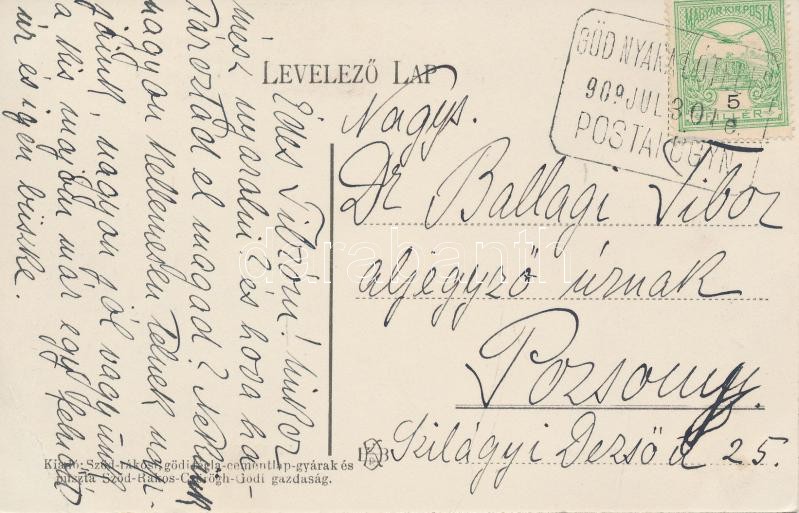 LEVELEZŐ LAP
MAGYAR KIR. POSTA
5
GÖD NYARALÓTELEP
909 JUL 30
POSTAI ÜGYN.
Nagys.
Dr Ballagi Tibor
aljegyző úrnak
Pozsony.
Szilágyi Dezső u 25.
Édes Tiborom! mikor
mész nyaralni és hova ha-
tároztad el magad? Nekünk
nagyon kellemesen telnek nap-
jaink, nagyon jól vagyunk
a kis majom már egy
úr és igen büszke.
Kiadó: Sződ-rákosi, gödi tégla-cementlap-gyárak és
puszta Sződ-Rákos-Csörögh-Gödi gazdaság.
darabanth